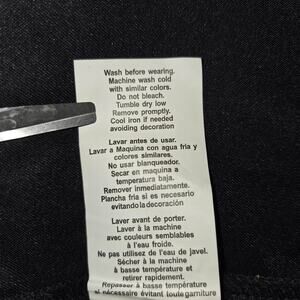 Wash before wearing.
Machine wash cold
with similar colors.
Do not bleach.
Tumble dry low
Remove promptly.
Cool iron if needed
avoiding decoration
Lavar antes de usar.
Lavar a Maquina con agua fria y
colores similares.
No usar blanqueador.
Secar en maquina a
temperatura baja.
Remover inmediatamente.
Plancha fria si es necesario
evitando la decoración
Laver avant de porter.
Laver à la machine
avec couleurs semblables
à l'eau froide.
Ne pas utilisez de l'eau de javel.
Sécher à la machine
à basse température et
retirer rapidement.
Repasser à basse température
si nécessaire évitant toute garniture